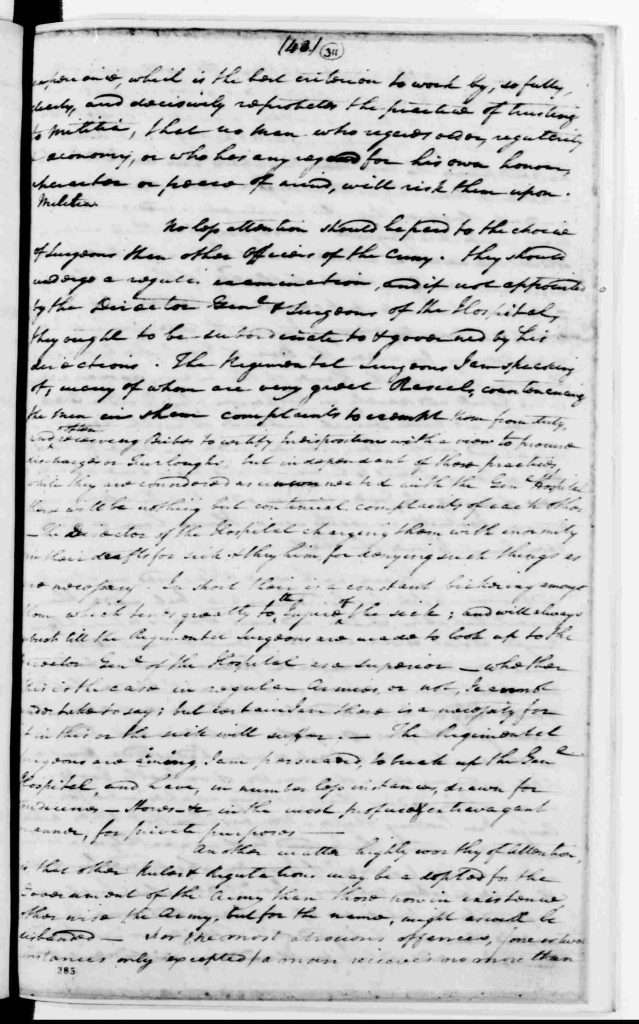 (43) 311
experience, which is the best criterion to work by, so fully,
clearly, and decisively reprobates the practice of trusting
to Militia, that no man who regards order, regularity
& economy, or who has any regard for his own honour,
character or peace of mind, will risk them upon
Militia
No less attention should be paid to the choice
of Surgeons than other Officers of the Army. they should
undergo a regular examination, and if not appointed
by the Director Genl & Surgeons of the Hospital,
they ought to be subordinate to & governed by his
directions. The Regimental Surgeons I am speaking
of, many of whom are very great Rascals, countenancing
the men in sham complaints to exempt them from duty,
and often receiving Bribes to certify Indispositions with a view to procure
discharges or Furloughs; but independent of these practices,
while they are considered as unconnected with the Genl Hospital
there will be nothing but continual complaints of each other
– The Director of the Hospital charging them with enormity
in their drafts for sick & they him for denying such things as
are necessary. In short there is a constant bickering among
them, which tends greatly to the Injury of the sick; and will always
subsist till the Regimental Surgeons are made to look up to the
Director Genl of the Hospital as a Superior – whether
this is the case in regular Armies, or not, I cannot
undertake to say; but certain I am there is a necessity for
it in this or the sick will suffer. – The Regimental
Surgeons are aiming, I am persuaded, to break up the Genl
Hospital, and have, in numberless instances, drawn for
Medicines – Stores – &c in the most profuse & extravagant
manner, for private purposes –
Another matter highly worthy of attention,
is that other Rules & Regulations may be adopted for the
Government of the Army than those now in existence,
otherwise the Army, but for the name, might as well be
disbanded – For the most atrocious offences, (one or two
instances only excepted) a man receives no more than
285